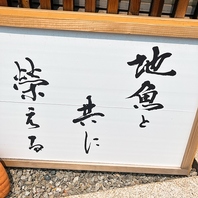 地魚と
共に
榮える